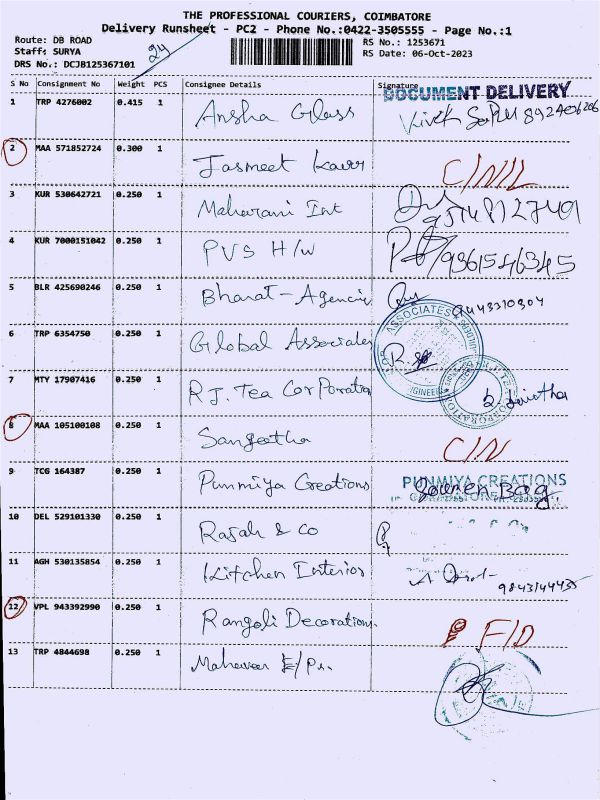 THE PROFESSIONAL COURIERS, COIMBATORE
Delivery Runsheet - PC2 - Phone No.:0422-3505555 - Page No.:1
Route: DB ROAD
RS No.: 1253671
Staff: SURYA
RS Date: 06-Oct-2023
DRS No.: DCJB125367101
24
S No Consignment No Weight PCS Consignee Details Signature
DOCUMENT DELIVERY
1 TRP 4276002 0.415 1 Ansha Glass Vivek
2 MAA 571852724 0.300 1 Jasmeet Kaur C/N/L
3 KUR 530642721 0.250 1 Maharani Int
4 KUR 7000151042 0.250 1 PVS H/W 9361546345
5 BLR 425690246 0.250 1 Bharat-Agencies 9443310304
ASSOCIATES
6 TRP 6354750 0.250 1 Global Associates
7 MTY 17907416 0.250 1 R.J. Tea Corporation
CORPORATION
8 MAA 105100108 0.250 1 Sangeetha C/N
9 TCG 164387 0.250 1 Punmiya Creations PUNMIYA CREATIONS
10 DEL 529101330 0.250 1 Rajah & Co
11 AGH 530135854 0.250 1 Kitchen Interior 9843144435
12 VPL 943392990 0.250 1 Rangoli Decorations. F/D
13 TRP 4844698 0.250 1 Mahaveer E/Ps.